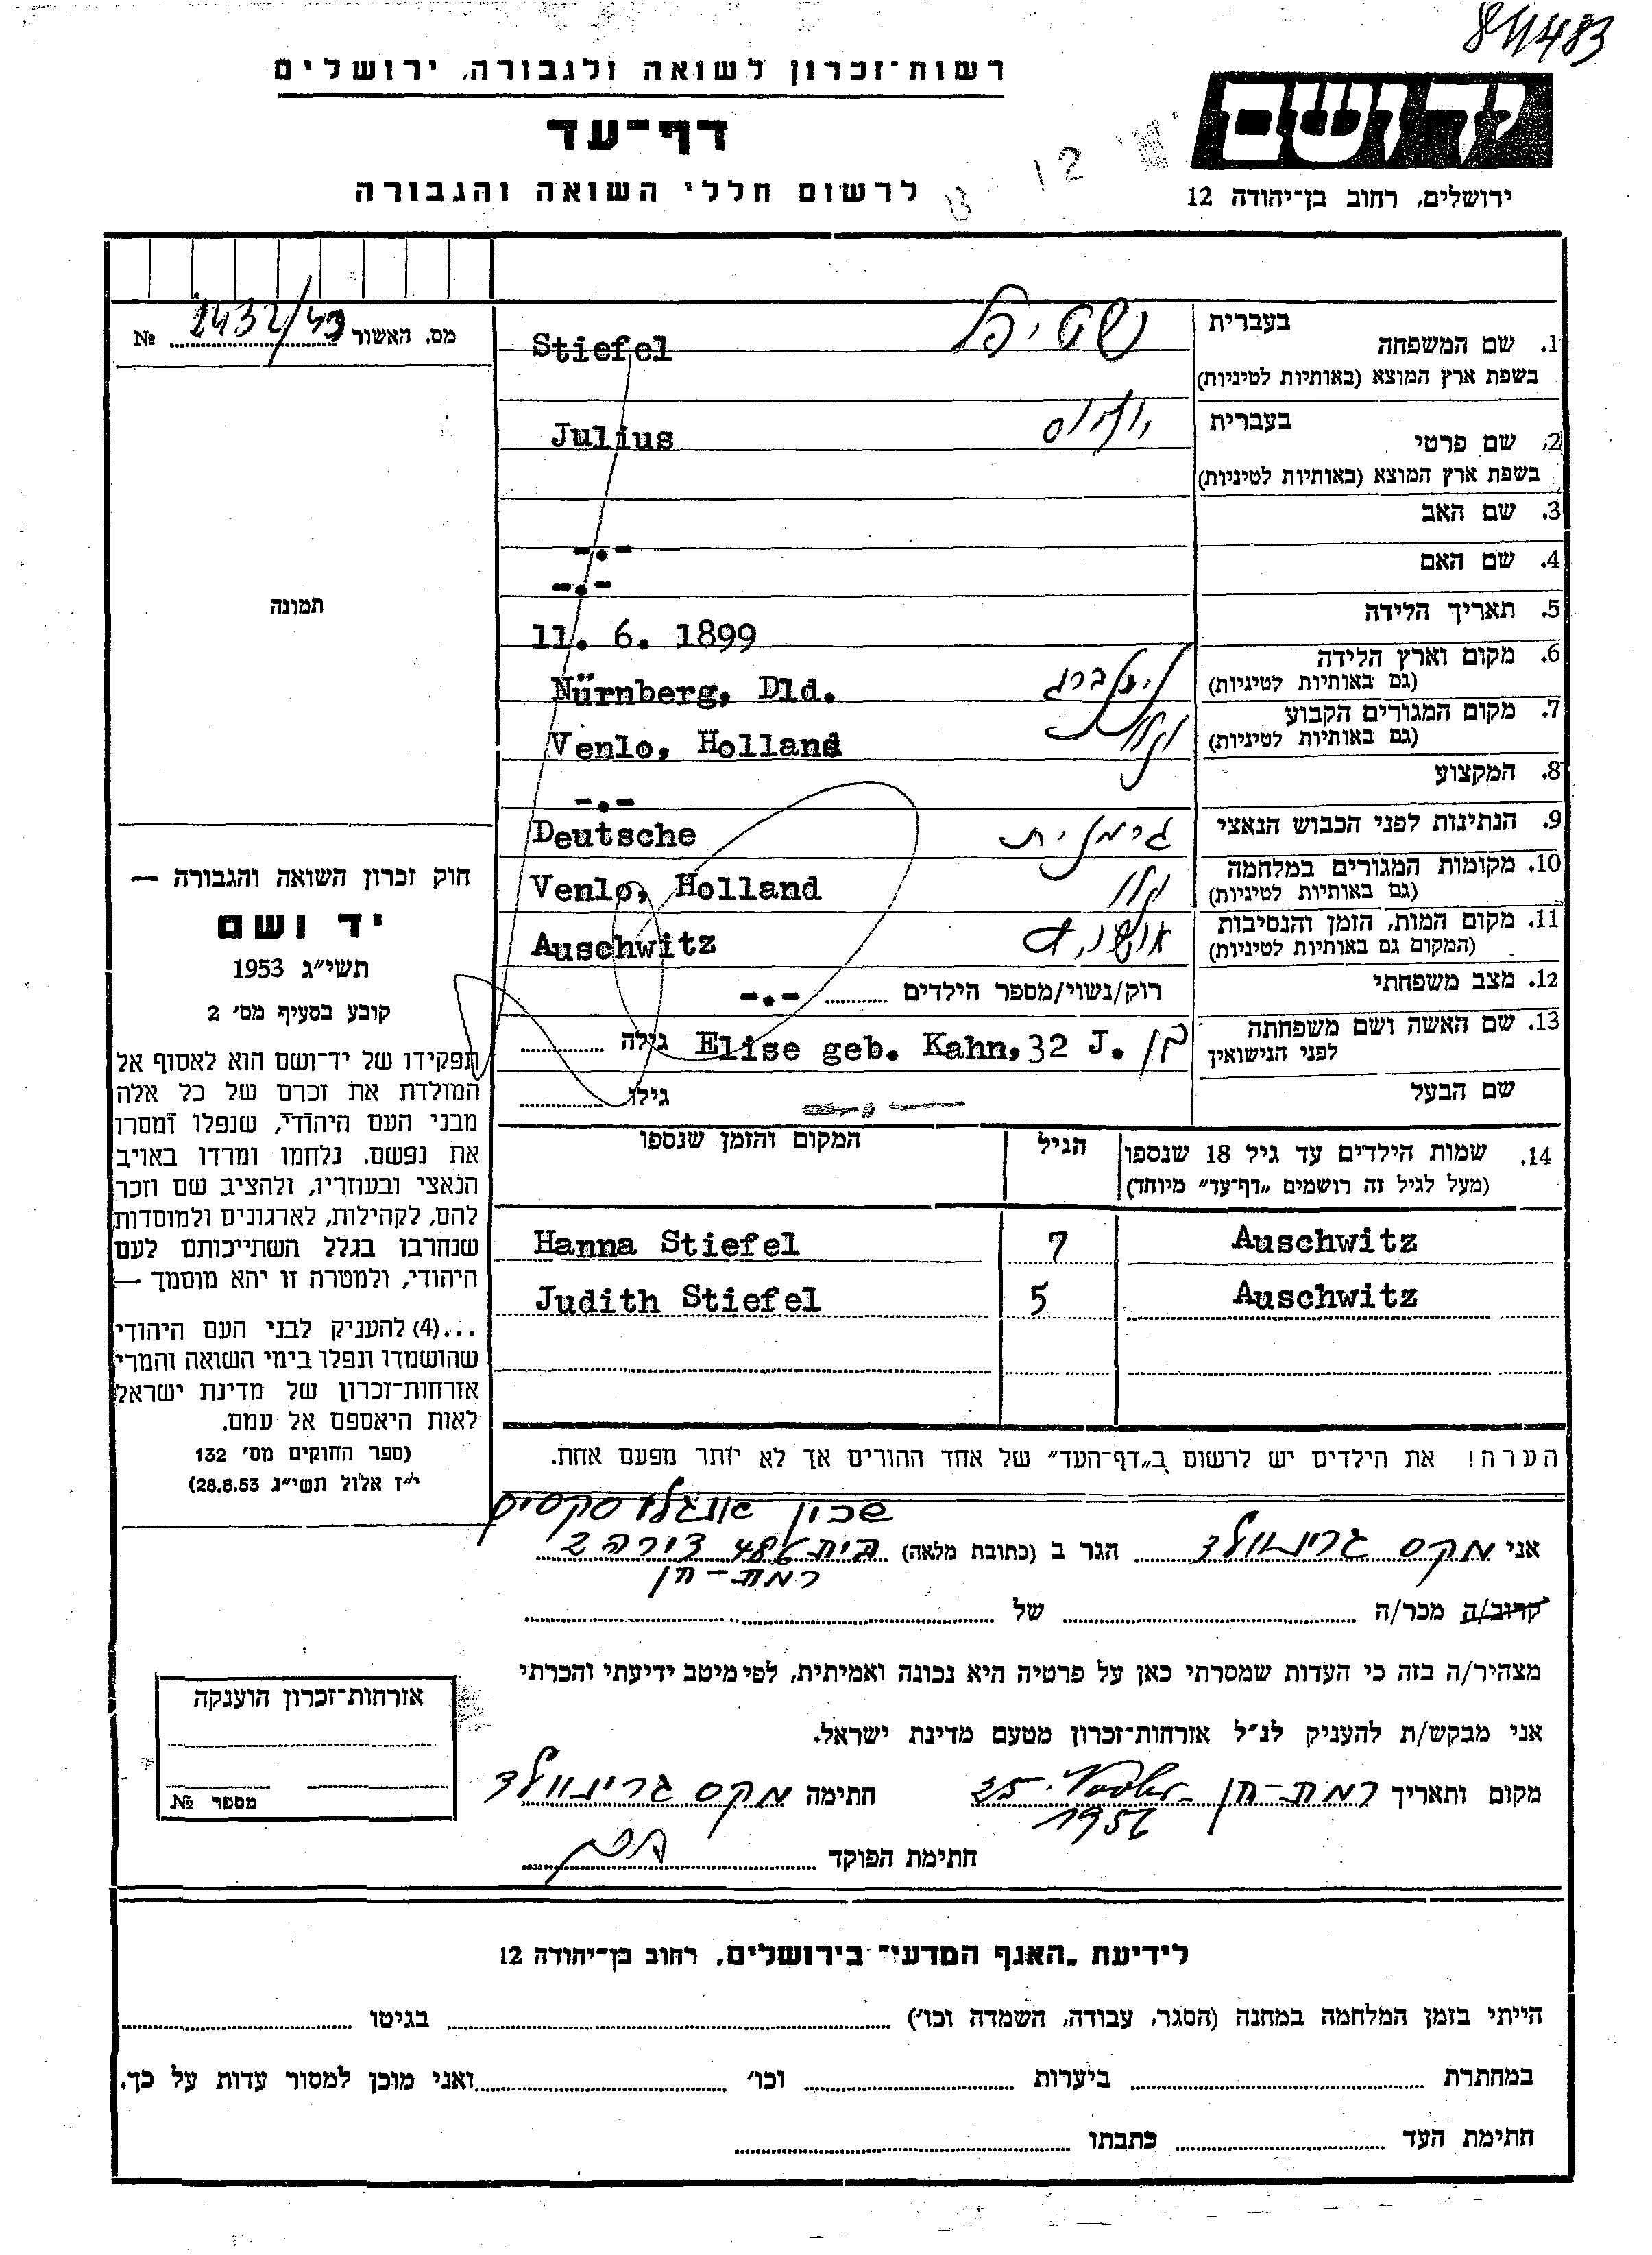 רשות־זכרון לשואה ולגבורה, ירושלים
דף־עד
לרשום חללי השואה והגבורה
יד ושם
ירושלים, רחוב בן־יהודה 12
מס. האשור 2432/43 №
תמונה
חוק זכרון השואה והגבורה —
יד ושם
תשי״ג 1953
קובע בסעיף מס׳ 2
תפקידו של יד־ושם הוא לאסוף אל
המולדת את זכרם של כל אלה
מבני העם היהודי, שנפלו ומסרו
את נפשם. נלחמו ומרדו באויב
הנאצי ובעוזריו, ולהציב שם וזכר
להם, לקהילות, לארגונים ולמוסדות
שנחרבו בגלל השתייכותם לעם
היהודי, ולמטרה זו יהא מוסמך —
...(4) להעניק לבני העם היהודי
שהושמדו ונפלו בימי השואה והמרי
אזרחות־זכרון של מדינת ישראל
לאות היאספם אל עמם.
(ספר החוקים מס׳ 132
י״ז אלול תשי״ג 28.8.53)
1. שם המשפחה
בעברית שטיפל
בשפת ארץ המוצא (באותיות לטיניות) Stiefel
2. שם פרטי
בעברית יוליוס
בשפת ארץ המוצא (באותיות לטיניות) Julius
3. שם האב -.-
4. שם האם -.-
5. תאריך הלידה 11. 6. 1899
6. מקום וארץ הלידה
(גם באותיות לטיניות) Nürnberg, Dld.
7. מקום המגורים הקבוע
(גם באותיות לטיניות) ונלו Venlo, Holland
8. המקצוע -.-
9. הנתינות לפני הכבוש הנאצי גרמנית Deutsche
10. מקומות המגורים במלחמה
(גם באותיות לטיניות) ונלו Venlo, Holland
11. מקום המות, הזמן והנסיבות
(המקום גם באותיות לטיניות) Auschwitz
12. מצב משפחתי רוק/נשוי/מספר הילדים -.-
13. שם האשה ושם משפחתה
לפני הנישואין Elise geb. Kahn, 32 J. גילה
שם הבעל גילו
14. שמות הילדים עד גיל 18 שנספו
(מעל לגיל זה רושמים „דף־עד״ מיוחד)
הגיל
המקום והזמן שנספו
Auschwitz 7 Hanna Stiefel
Auschwitz 5 Judith Stiefel
הערה! את הילדים יש לרשום ב„דף־העד״ של אחד ההורים אך לא יותר מפעם אחת.
שכון אנגלו סקסים
אני מקס גרינוולד הגר ב (כתובת מלאה) בית 486 דירה 2
רמת-חן
קרוב/ה מכר/ה של
מצהיר/ה בזה כי העדות שמסרתי כאן על פרטיה היא נכונה ואמיתית, לפי מיטב ידיעתי והכרתי
אני מבקש/ת להעניק לנ״ל אזרחות־זכרון מטעם מדינת ישראל.
מקום ותאריך רמת-חן 25. 1956 חתימה מקס גרינוולד
חתימת הפוקד
אזרחות־זכרון הוענקה
מספר №
לידיעת „האגף המדעי״ בירושלים, רחוב בן־יהודה 12
הייתי בזמן המלחמה במחנה (הסגר, עבודה, השמדה וכו׳) בגיטו
במחתרת ביערות וכו׳ ואני מוכן למסור עדות על כך.
חתימת העד כתבתו